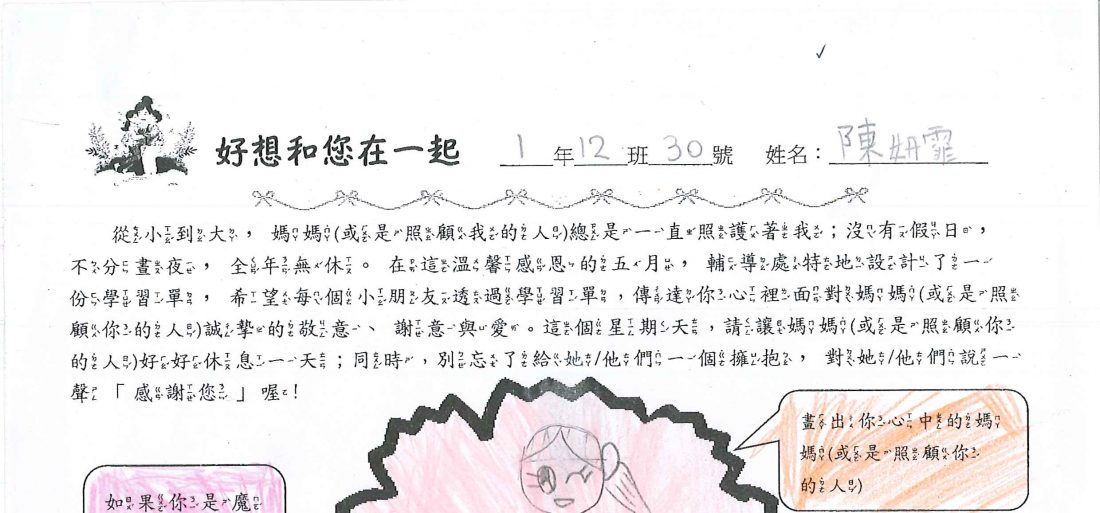 好想和您在一起 1年12班30號 姓名：陳妍霏
從小到大，媽媽(或是照顧我的人)總是一直照護著我；沒有假日，
不分晝夜，全年無休。在這溫馨感恩的五月，輔導處特地設計了一
份學習單，希望每個小朋友透過學習單，傳達你心裡面對媽媽(或是照
顧你的人)誠摯的敬意、謝意與愛。這個星期天，請讓媽媽(或是照顧你
的人)好好休息一天；同時，別忘了給她/他們一個擁抱，對她/他們說一
聲「感謝您」喔！
畫出你心中的媽
媽(或是照顧你
的人)
如果你是魔